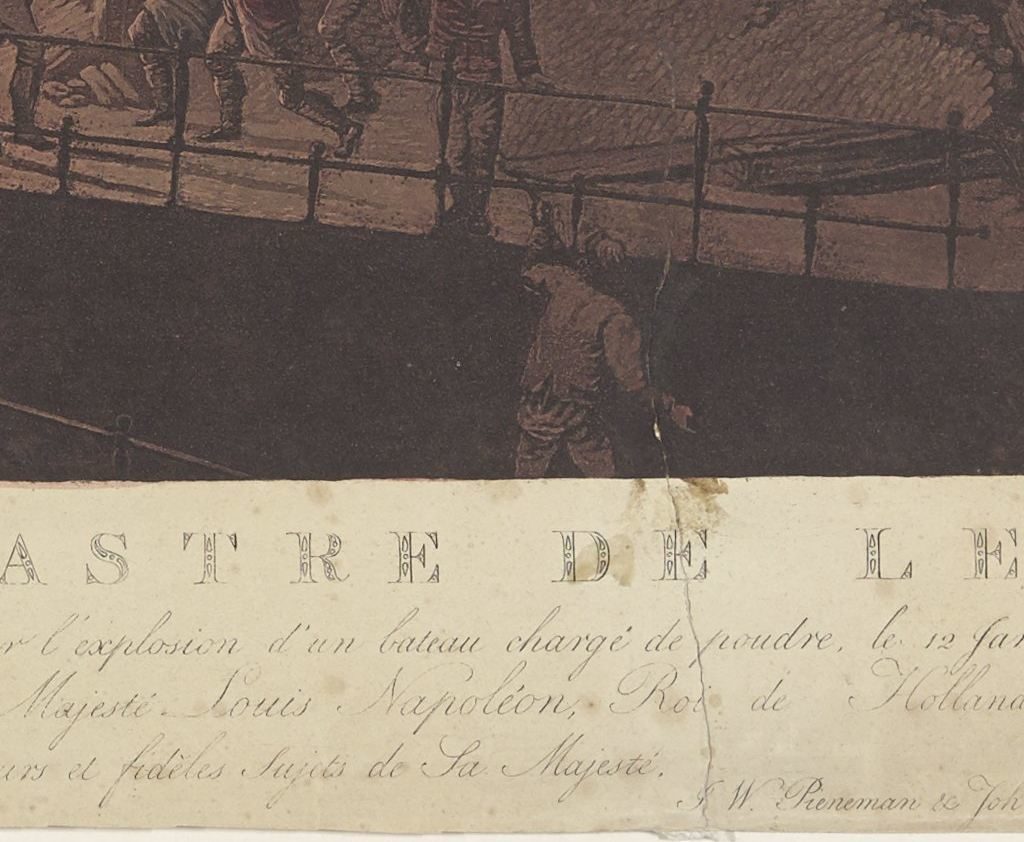 ASTRE DE LE
r l'explosion d'un bateau chargé de poudre, le 12 Jan
Majesté Louis Napoléon, Roi de Holland
urs et fidèles Sujets de Sa Majesté.
J. W. Pieneman & Joh